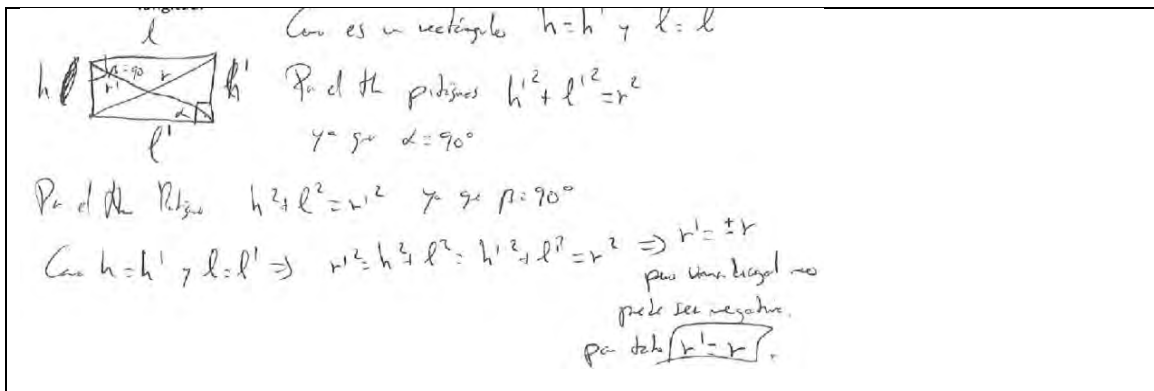 longitud
l
Como es un rectángulo h=h' y l=l
h β=90 r h'
r'
α
Por el th pitágoras h'² + l'² = r²
l'
ya que α=90°
Por el th Pitágoras h²+l²=r'² ya que β=90°
Como h=h' y l=l' ⇒ r'²=h²+l²=h'²+l'²=r² ⇒ r'=±r
pero una diagonal no
puede ser negativa.
por tanto r'=r.